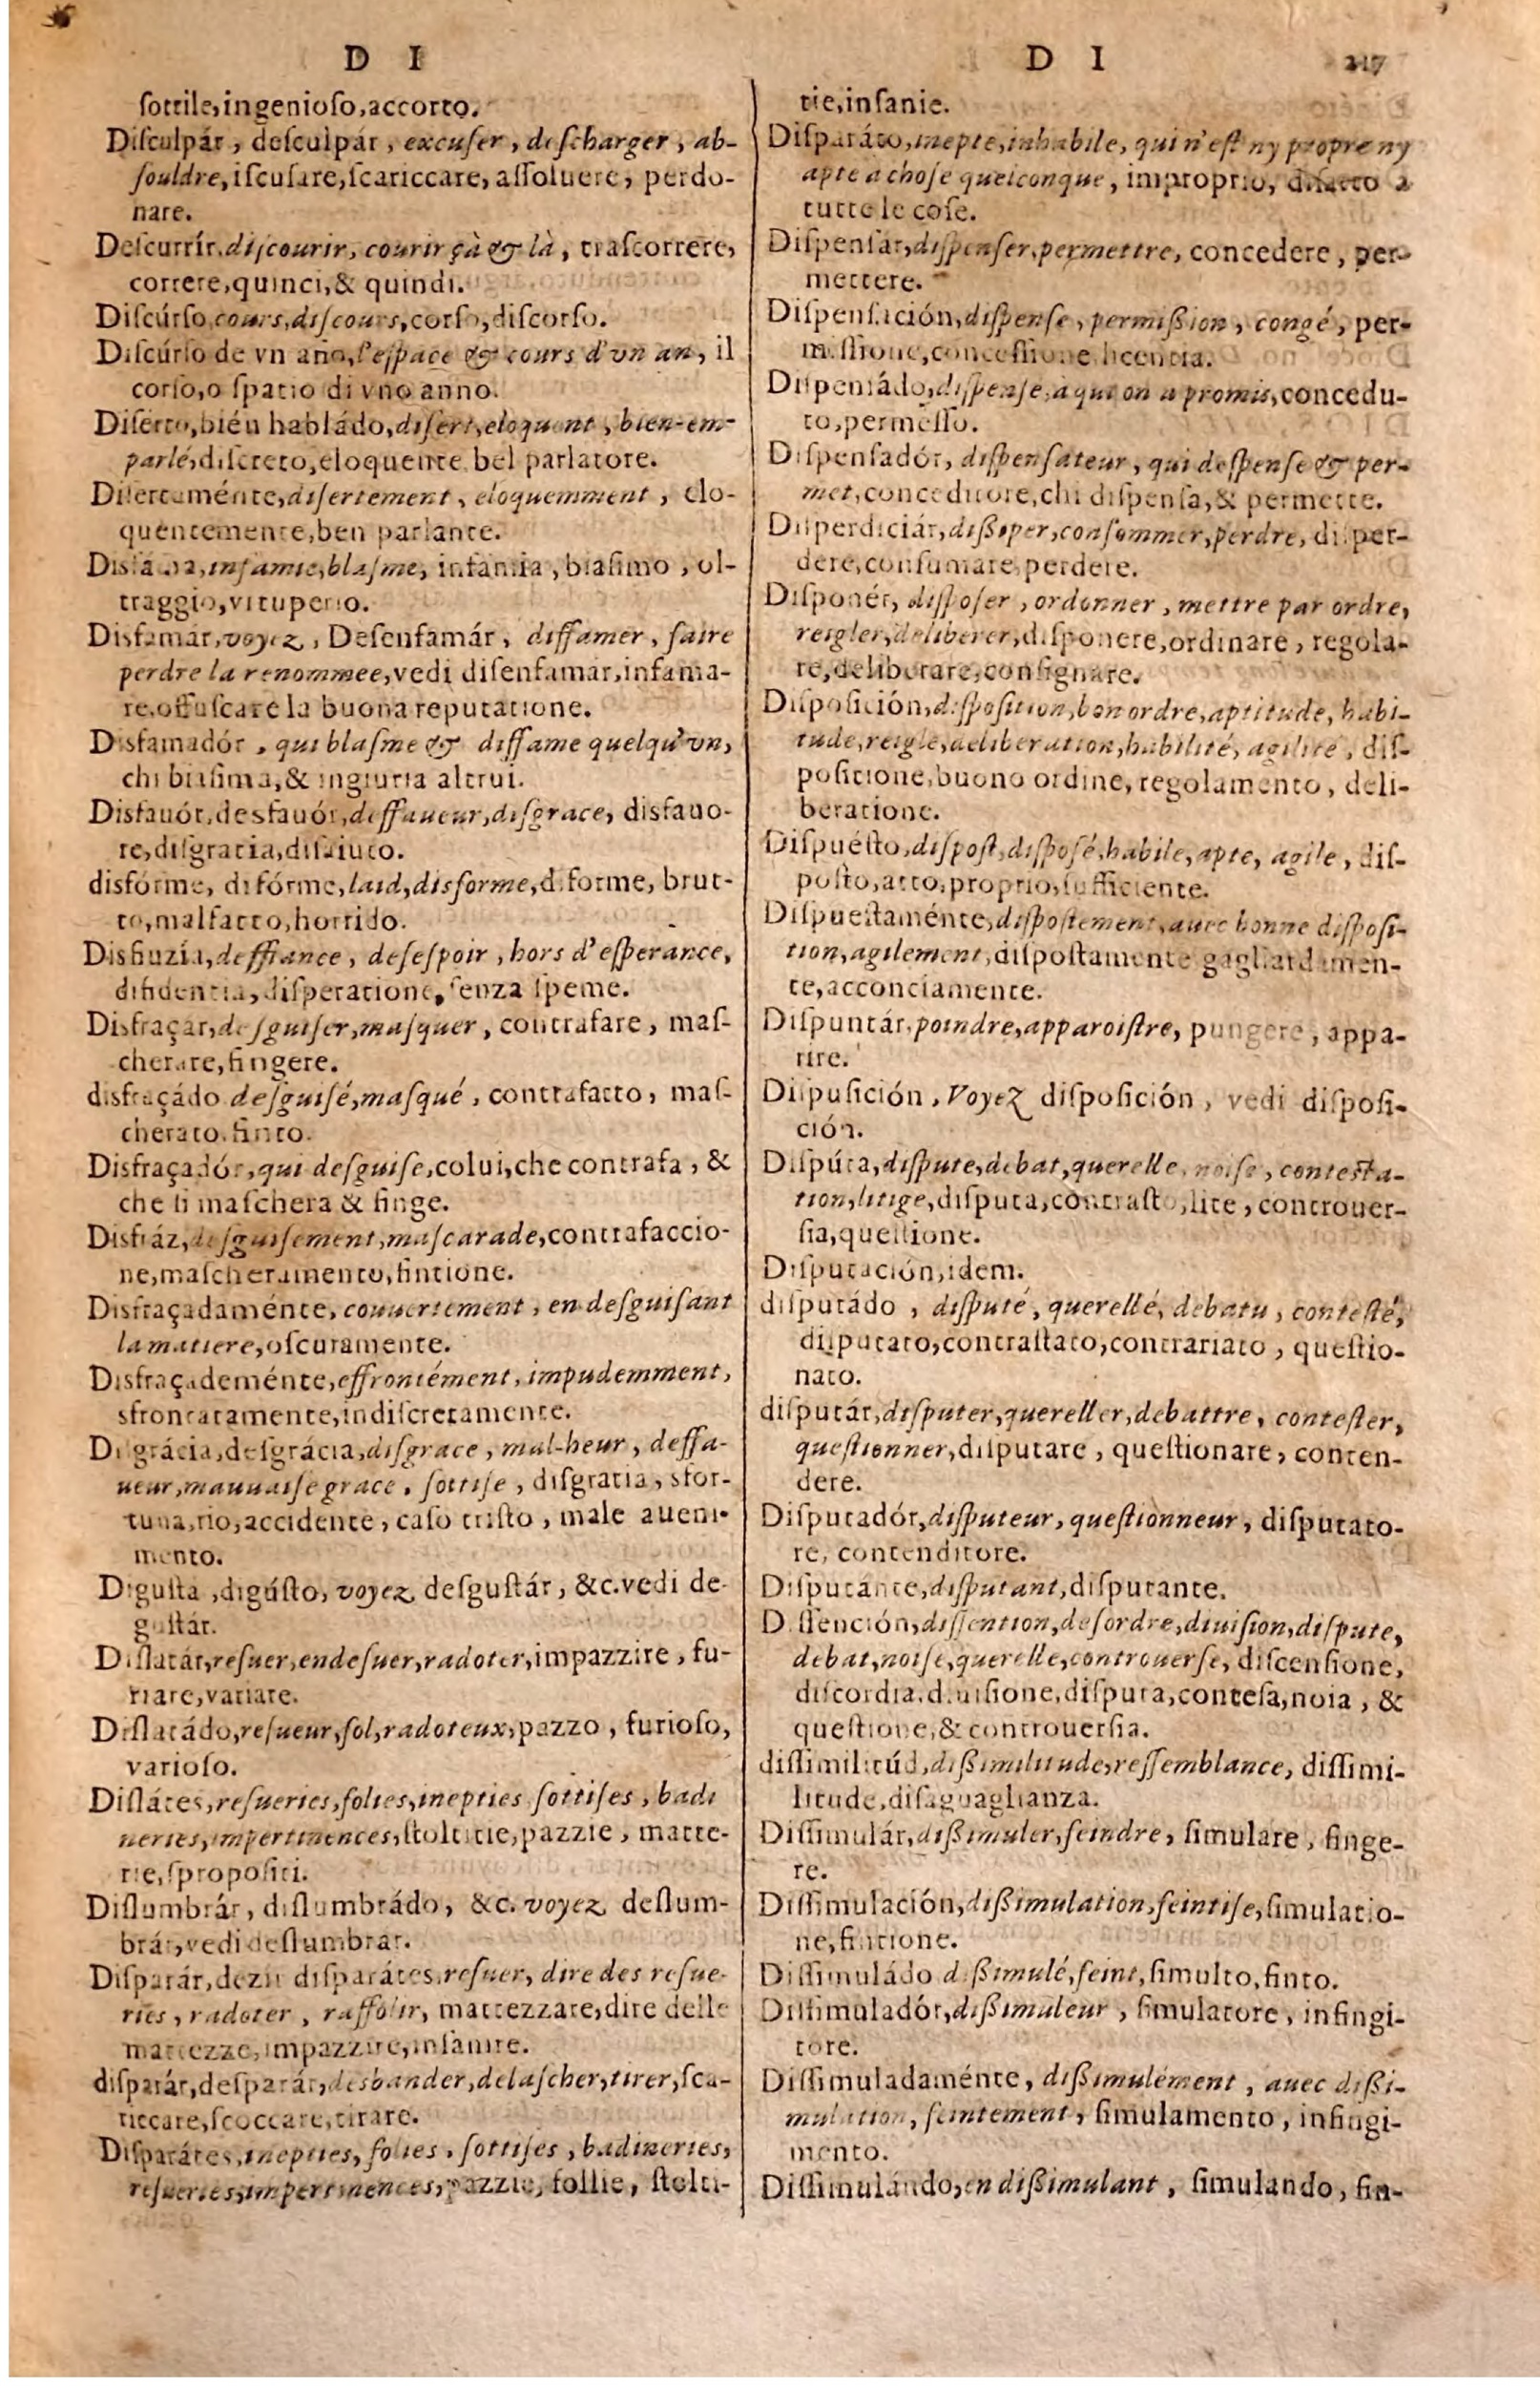 D I
ſottile,ingenioſo,accorto.
Diſculpár, deſculpár, excuſer, deſcharger, ab-
ſouldre,iſcuſare,ſcariccare, aſſoluere, perdo-
nare.
Deſcurrír,diſcourir, courir çà & là, traſcorrere,
correre,quinci,& quindi.
Diſcúrſo,cours,diſcours,corſo,diſcorſo.
Diſcúrſo de vn año,l'eſpace & cours d'vn an, il
corſo,o ſpatio di vno anno.
Diſerto,bién habládo,diſert,eloquent, bien-em-
parlé,diſcreto,eloquente bel parlatore.
Diſertaménte,diſertement, eloquemment, elo-
quentemente,ben parlante.
Disfáma,infamie,blaſme, infamia, biaſimo, ol-
traggio,vituperio.
Disfamár,voyez, Deſenfamár, diffamer, faire
perdre la renommee,vedi diſenfamar,infama-
re,offuſcare la buona reputatione.
Disfamadór, qui blaſme & diffame quelqu'vn,
chi biaſima,& ingiuria altrui.
Disfauór,desfauór,deffaueur,diſgrace, disfauo-
re,diſgratia,diſaiuto.
disfórme, difórme,laid,disforme,diforme, brut-
to,malfatto,horrido.
Disfiuzía,deffiance, deſeſpoir, hors d'eſperance,
difidentia,diſperatione,ſenza ſpeme.
Disfraçár,deſguiſer,maſquer, contrafare, maſ-
cherare,fingere.
disfraçádo deſguiſé,maſqué, contrafatto, maſ-
cherato.finto.
Disfraçadór,qui deſguiſe,colui,che contrafa, &
che ſi maſchera & finge.
Disfráz,deſguiſement,maſcarade,contrafaccio-
ne,maſcheramento,fintione.
Disfraçadaménte, couuertement, en deſguiſant
la matiere,oſcuramente.
Disfraçademénte,effrontément, impudemment,
sfrontatamente,indiſcretamente.
Diſgrácia,deſgrácia,diſgrace, mal-heur, deffa-
ueur,mauuaiſe grace, ſottiſe, diſgratia, sfor-
tuna,rio,accidente, caſo triſto, male aueni-
mento.
Diguſta ,digúſto, voyez deſguſtár, &c.vedi de-
guſtár.
Diſlatár,reſuer,endeſuer,radoter,impazzire, fu-
riare,variare.
Diſlatádo,reſueur,fol,radoteux,pazzo, furioſo,
varioſo.
Diſlátes,reſueries,folies,inepties ſottiſes, badi
neries,impertinences,ſtoltitie,pazzie, matte-
rie,ſpropoſiti.
Diſlumbrár, diſlumbrádo, &c. voyez deſlum-
brár,vedi deſlumbrar.
Diſparár,dezir diſparátes,reſuer, dire des reſue-
ries, radoter, raffolir, mattezzare,dire delle
mattezze,impazzire,inſanire.
diſparár,deſparár,desbander,delaſcher,tirer,ſca-
riccare,ſcoccare,tirare.
Diſparátes,inepties, folies, ſottiſes, badineries,
reſueries,impertinences,pazzie, follie, ſtolti-
D I 217
tie,inſanie.
Diſparáto,inepte,inhabile, qui n'eſt ny propre ny
apte a choſe quelconque, improprio, diſatto a
tutte le coſe.
Diſpenſár,diſpenſer,permettre, concedere, per-
mettere.
Diſpenſación,diſpenſe, permißion, congé, per-
miſſione,conceſſione licentia.
Diſpenſádo,diſpenſe,a qui on a promis,concedu-
to,permeſſo.
Diſpenſadór, diſpenſateur, qui deſpenſe & per-
met,conceditore,chi diſpenſa,& permette.
Diſperdiciár,dißiper,conſommer,perdre, diſper-
dere,conſumare,perdere.
Diſponér, diſpoſer, ordonner, mettre par ordre,
reigler,deliberer,diſponere,ordinare, regola-
re,deliberare,conſignare.
Diſpoſición,diſpoſition,bon ordre,aptitude, habi-
tude,reigle,deliberation,habilité, agilité, diſ-
poſitione,buono ordine, regolamento, deli-
beratione.
Diſpuéſto,diſpoſt,diſpoſé,habile,apte, agile, diſ-
poſto,atto,proprio,ſufficiente.
Diſpueſtaménte,diſpoſtement,auec bonne diſpoſi-
tion,agilement,diſpoſtamente gagliardamen-
te,acconciamente.
Diſpuntár,poindre,apparoiſtre, pungere, appa-
rire.
Diſpuſición, Voyez diſpoſición, vedi diſpoſi-
ción.
Diſpúta,diſpute,debat,querelle, noiſe, conteſta-
tion,litige,diſputa,contraſto,lite, controuer-
ſia,queſtione.
Diſputación,idem.
diſputádo, diſputé, querellé, debatu, conteſté,
diſputato,contraſtato,contrariato, queſtio-
nato.
diſputár,diſputer,quereller,debattre, conteſter,
queſtionner,diſputare, queſtionare, conten-
dere.
Diſputadór,diſputeur, queſtionneur, diſputato-
re, contenditore.
Diſputánte,diſputant,diſputante.
Diſſención,diſſention,deſordre,diuiſion,diſpute,
debat,noiſe,querelle,controuerſe, diſcenſione,
diſcordia,diuiſione,diſputa,conteſa,noia, &
queſtione,& controuerſia.
diſſimilitúd,dißimilitude,reſſemblance, diſſimi-
litude,diſaguaglianza.
Diſſimulár,dißimuler,feindre, ſimulare, finge-
re.
Diſſimulación,dißimulation,feintiſe,ſimulatio-
ne,fintione.
Diſſimuládo dißimulé,feint,ſimulto,finto.
Diſſimuladór,dißimuleur, ſimulatore, infingi-
tore.
Diſſimuladaménte, dißimulément, auec dißi-
mulation, feintement, ſimulamento, infingi-
mento.
Diſſimulándo,en dißimulant, ſimulando, fin-